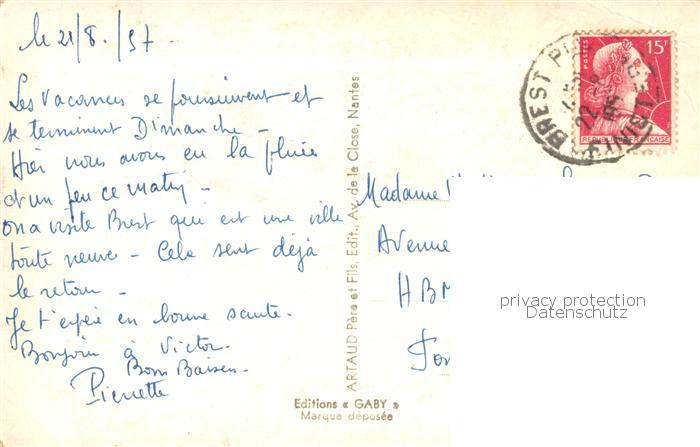 le 21/8./57.
Les vacances se poursuivent et
se terminent Dimanche -
Hier nous avons eu la pluie
et un peu ce matin -
On a visité Brest qui est une ville
toute neuve - Cela sent déjà
le retour -
Je t'espère en bonne santé.
Bonjour à Victor.
Bons Baisers.
Pierrette
ARTAUD Père et Fils, Edit., Av. de la Close, Nantes
Editions « GABY »
Marque déposée
POSTES
15F
REPUBLIQUE FRANÇAISE
BREST
22
Madame
Avenue
HBM
privacy protection
Datenschutz